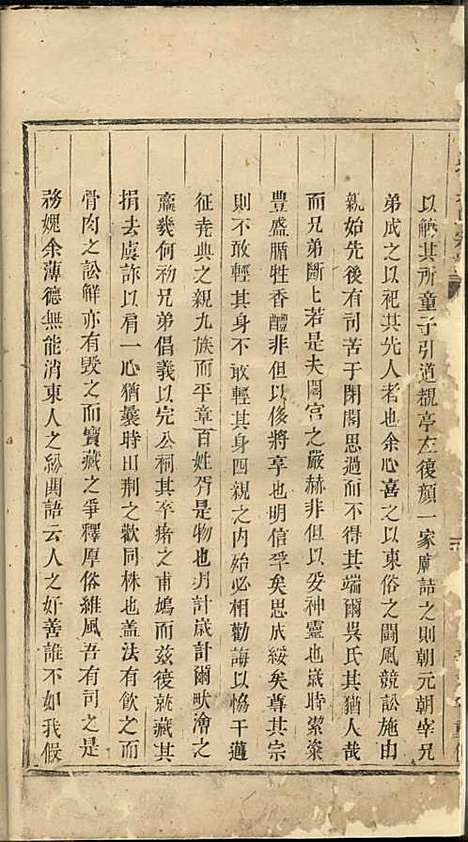 以觴其所童子引道覩亭左復顏一家廟詰之則朝元朝宰兄
弟成之以祀其先人者也余心喜之以東俗之鬪風競訟施由
親始先後有司苦于閉閣思過而不得其端爾吳氏其猶人哉
而兄弟斷上若是夫閟宮之嚴赫非但以妥神靈也歲時索粢
豐盛腯牲香醴非但以侈將享也明信孚矣思成綏矣尊其宗
則不敢輕其身不敢輕其身四親之内始必相勸誨以恪干邁
征堯典之親九族而平章百姓胥是物也月計歲計爾畎澮之
羸幾何初兄弟倡義以完公祠其卒瘏之甫鳩而茲復就藏其
捐去虞詐以肩一心猶曩時田荆之歡同株也蓋法有飲之而
骨肉之訟解亦有毁之而寶藏之爭釋厚俗維風吾有司之是
務媿余薄德無能消東人之紛鬩語云人之好善誰不如我假